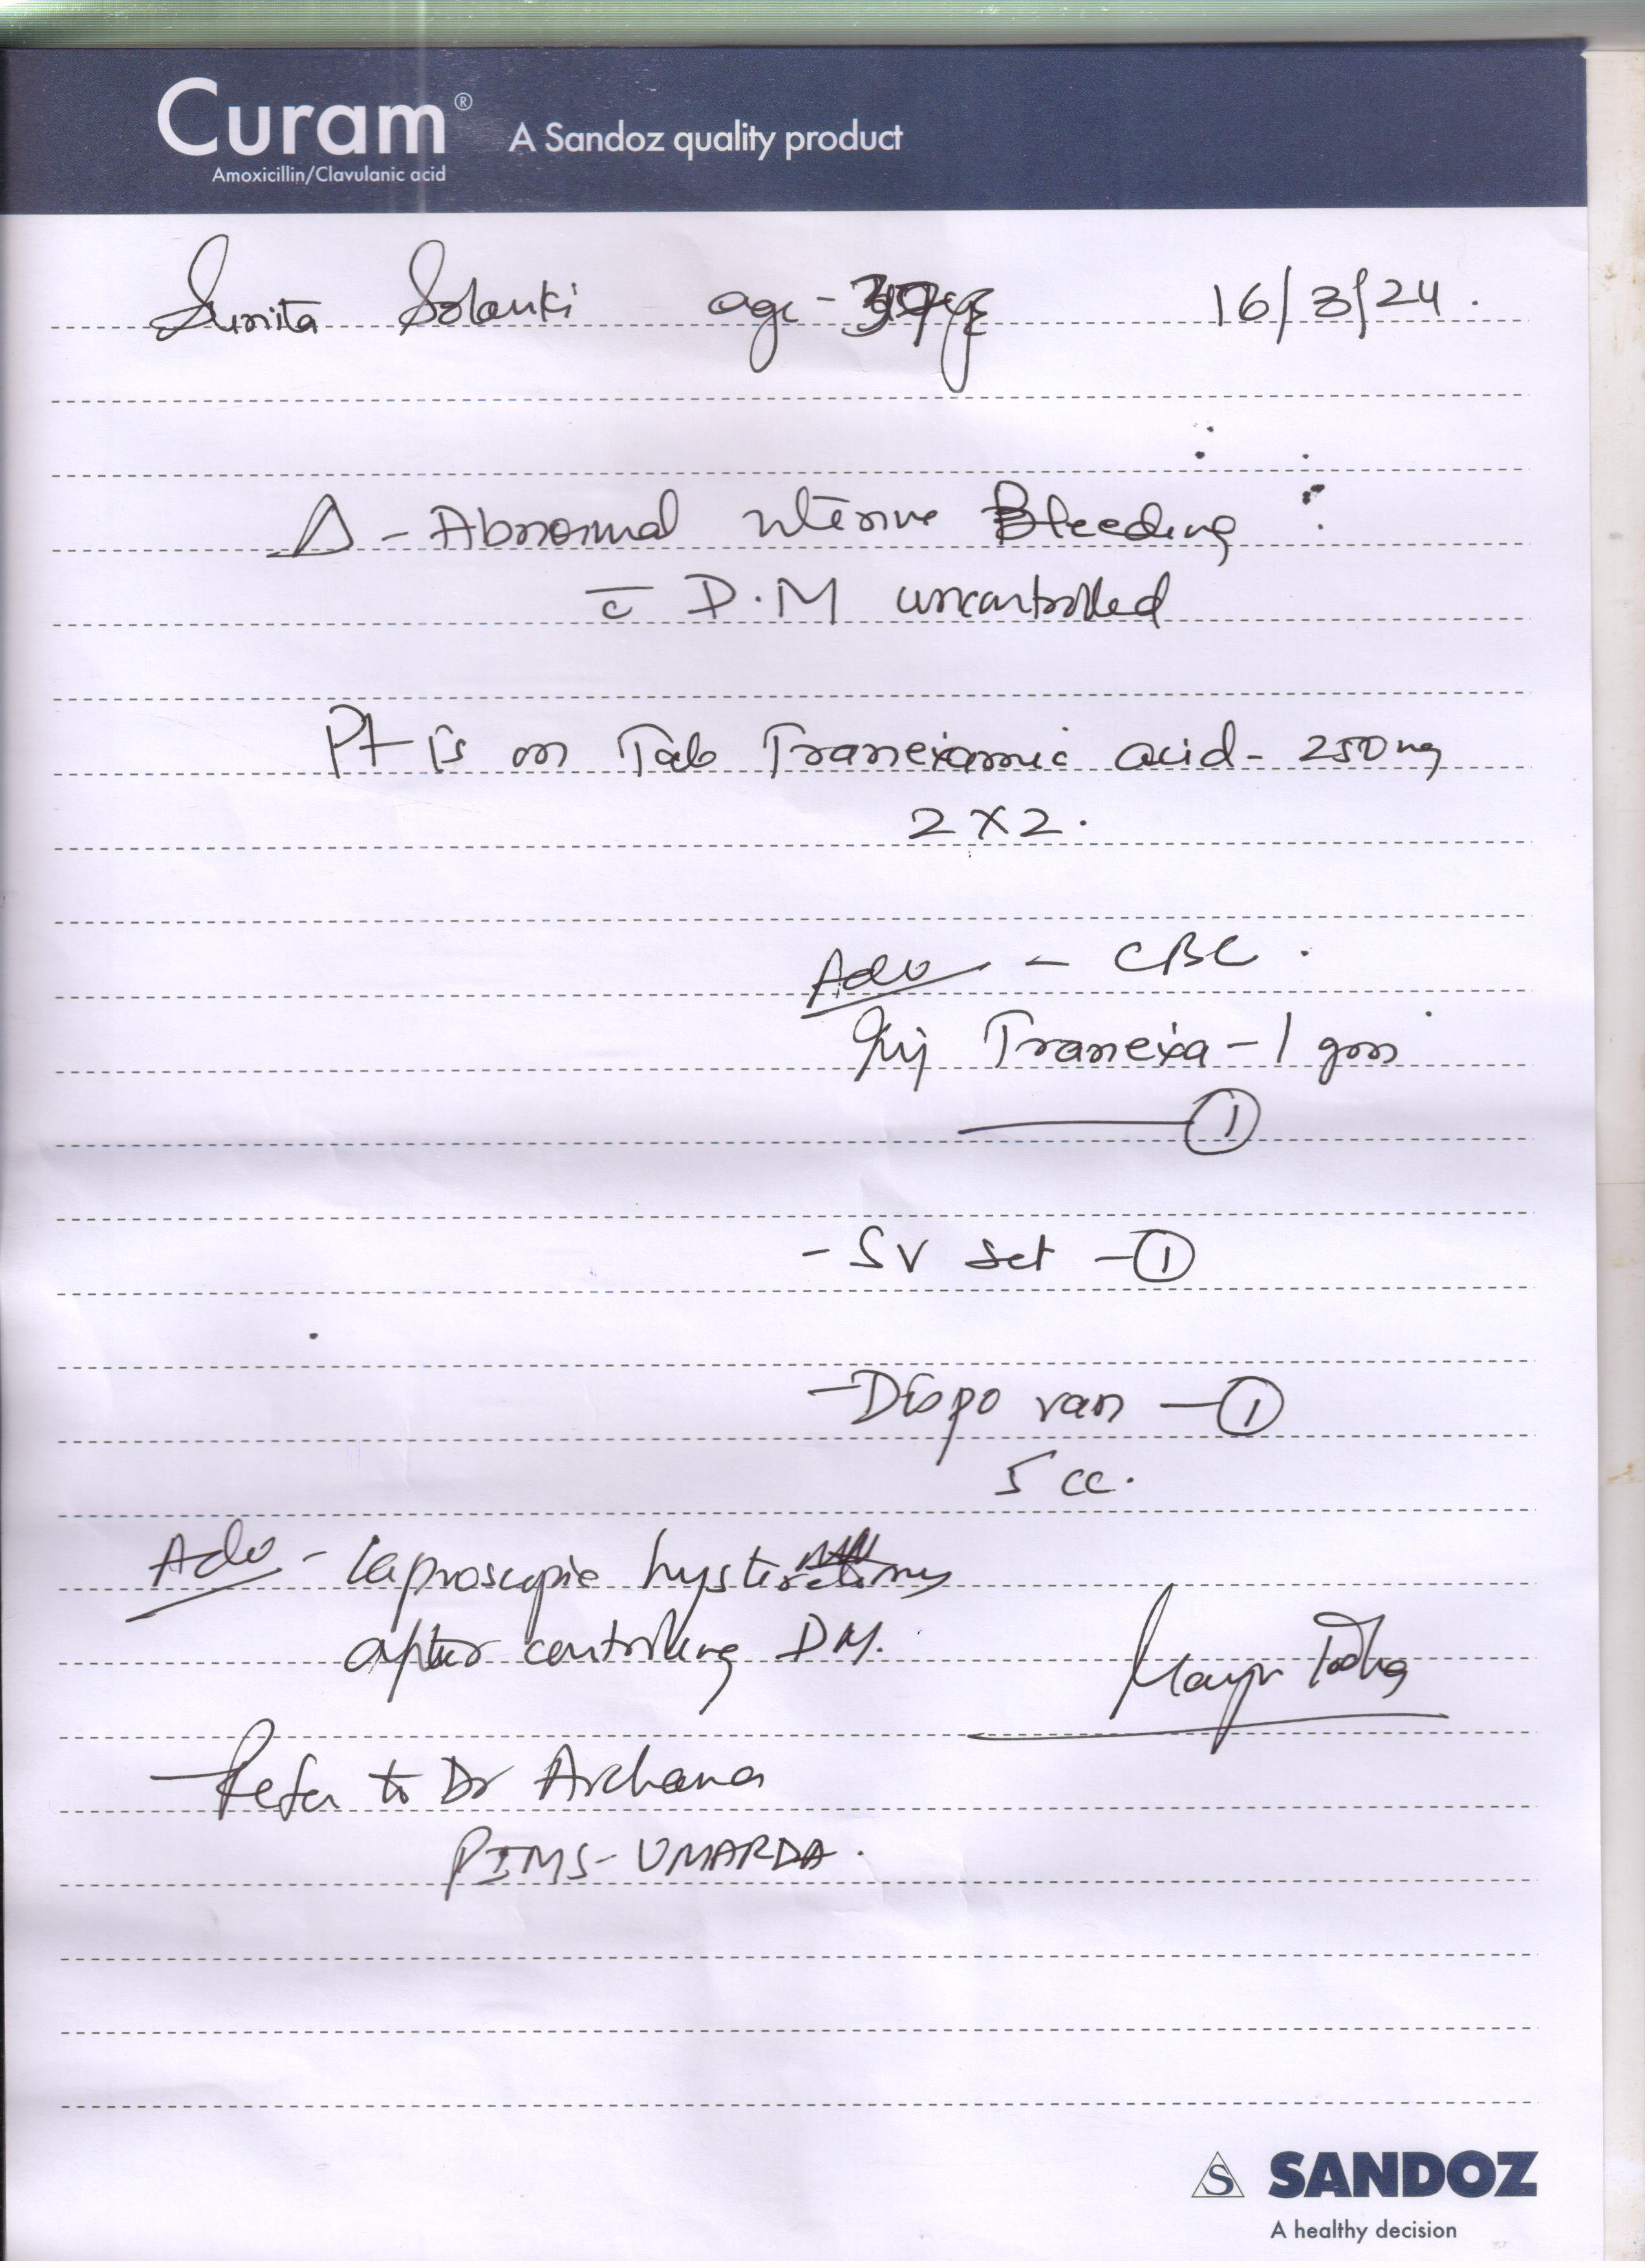 Curam®
A Sandoz quality product
Amoxicillin/Clavulanic acid
Sunita Solanki age - 16/3/24.
Δ - Abnormal uterine Bleeding
c̄ D.M uncontrolled
Pt is on Tab Tranexamic acid - 250mg
2 x 2.
Adv - CBC.
Inj Tranexa - 1 gm
1
- SV set - 1
- Dispo van - 1
5 cc.
Adv - laproscopic
after controlling DM.
- Refer to Dr Archana
PIMS - UMARDA.
S SANDOZ
A healthy decision